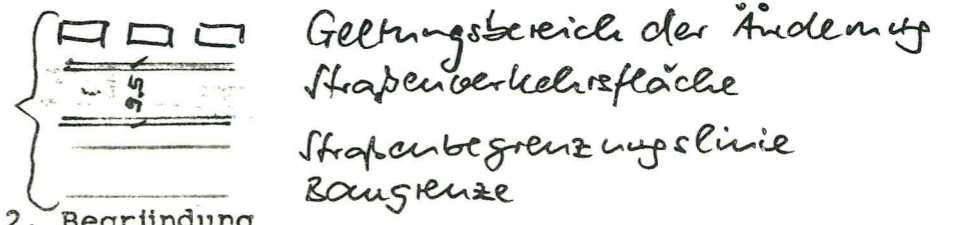 Geltungsbereich der Änderung
Straßenverkehrsfläche
9.5
Straßenbegrenzungslinie
Baugrenze
2. Begründung